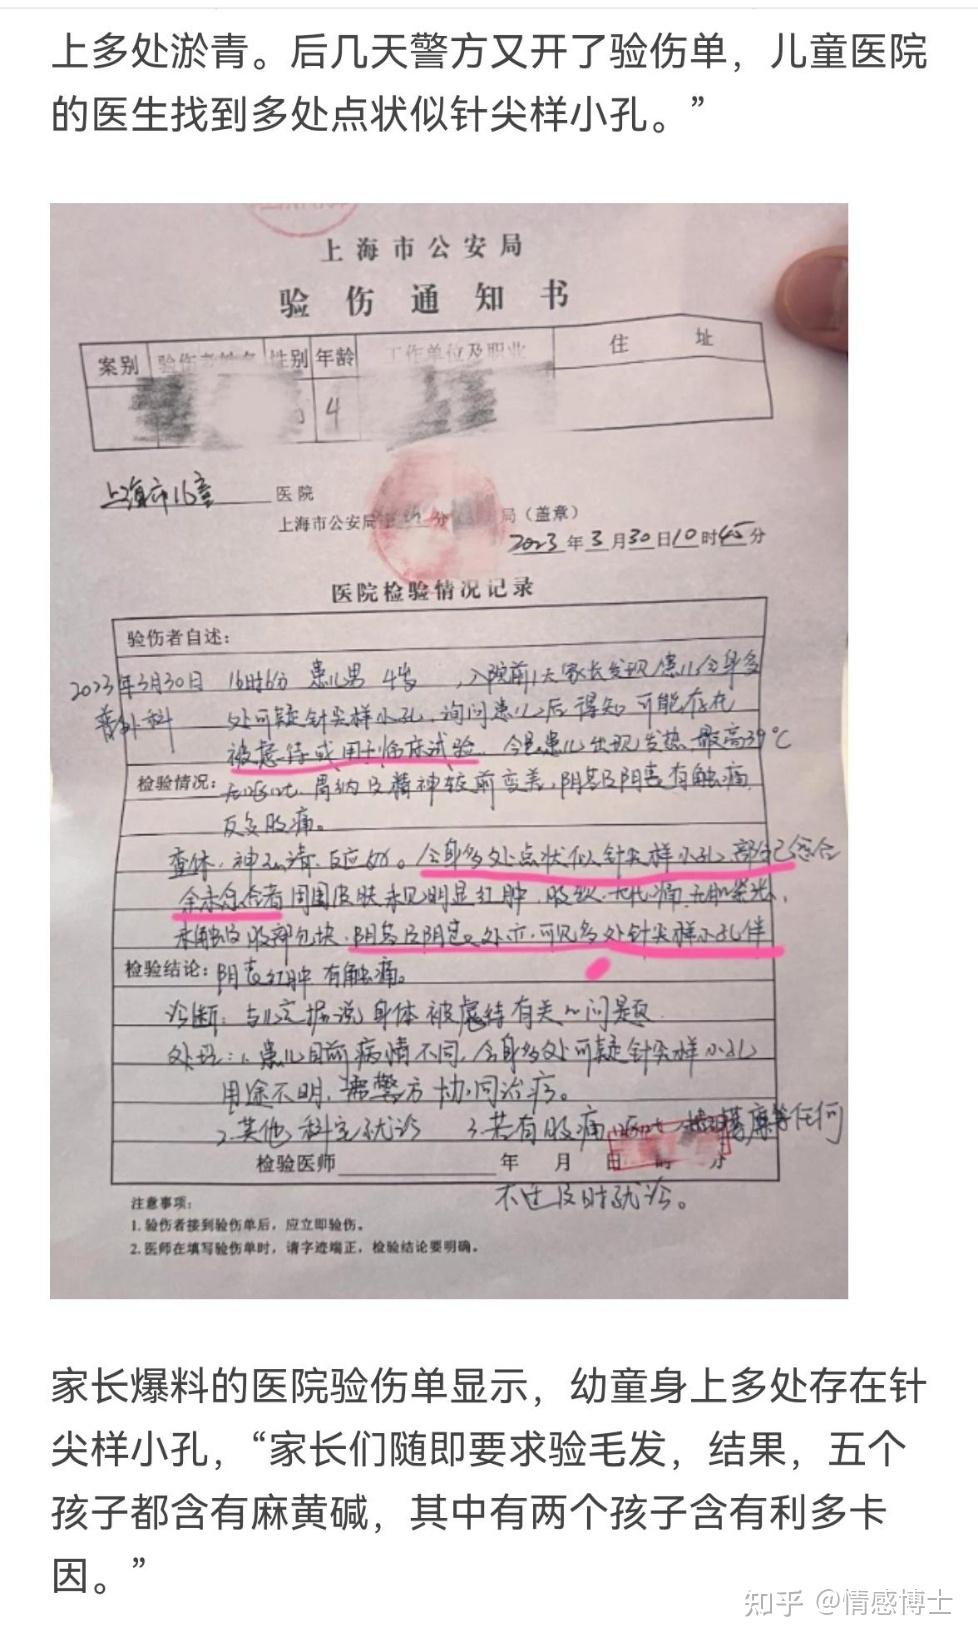 上多处淤青。后几天警方又开了验伤单，儿童医院
的医生找到多处点状似针尖样小孔。”
上海市公安局
验伤通知书
案别 验伤者姓名 性别 年龄 工作单位及职业 住址
4
上海市儿童 医院
上海市公安局 局（盖章）
2023年3月30日10时45分
医院检验情况记录
验伤者自述：
2023年3月30日 16时6分 患儿男 4岁，入院前1天家长发现患儿全身多
普外科 处可疑针尖样小孔，询问患儿后得知可能存在
被虐待或用于临床试验。今患儿出现发热 最高39℃
检验情况： 无呕吐，胃纳及精神较前变差，阴茎及阴囊有触痛
反复腹痛。
查体：神志清，反应好。全身多处点状似针尖样小孔，部分已愈合
余未愈合者周围皮肤未见明显红肿，腹软，无压痛，无肌紧张，
未触及腹部包块，阴茎及阴囊 可见多处针尖样小孔伴
检验结论： 阴囊红肿 有触痛。
诊断： 身体被虐待有关的问题
处理：1.患儿目前病情不同，全身多处可疑针尖样小孔
用途不明，需警方协同治疗。
2.其他科室就诊 3.若有腹痛 呕吐 等任何
检验医师 年 月 日 时 分
不适及时就诊。
注意事项：
1.验伤者接到验伤单后，应立即验伤。
2.医师在填写验伤单时，请字迹端正，检验结论要明确。
家长爆料的医院验伤单显示，幼童身上多处存在针
尖样小孔，“家长们随即要求验毛发，结果，五个
孩子都含有麻黄碱，其中有两个孩子含有利多卡
因。”
知乎 @情感博士